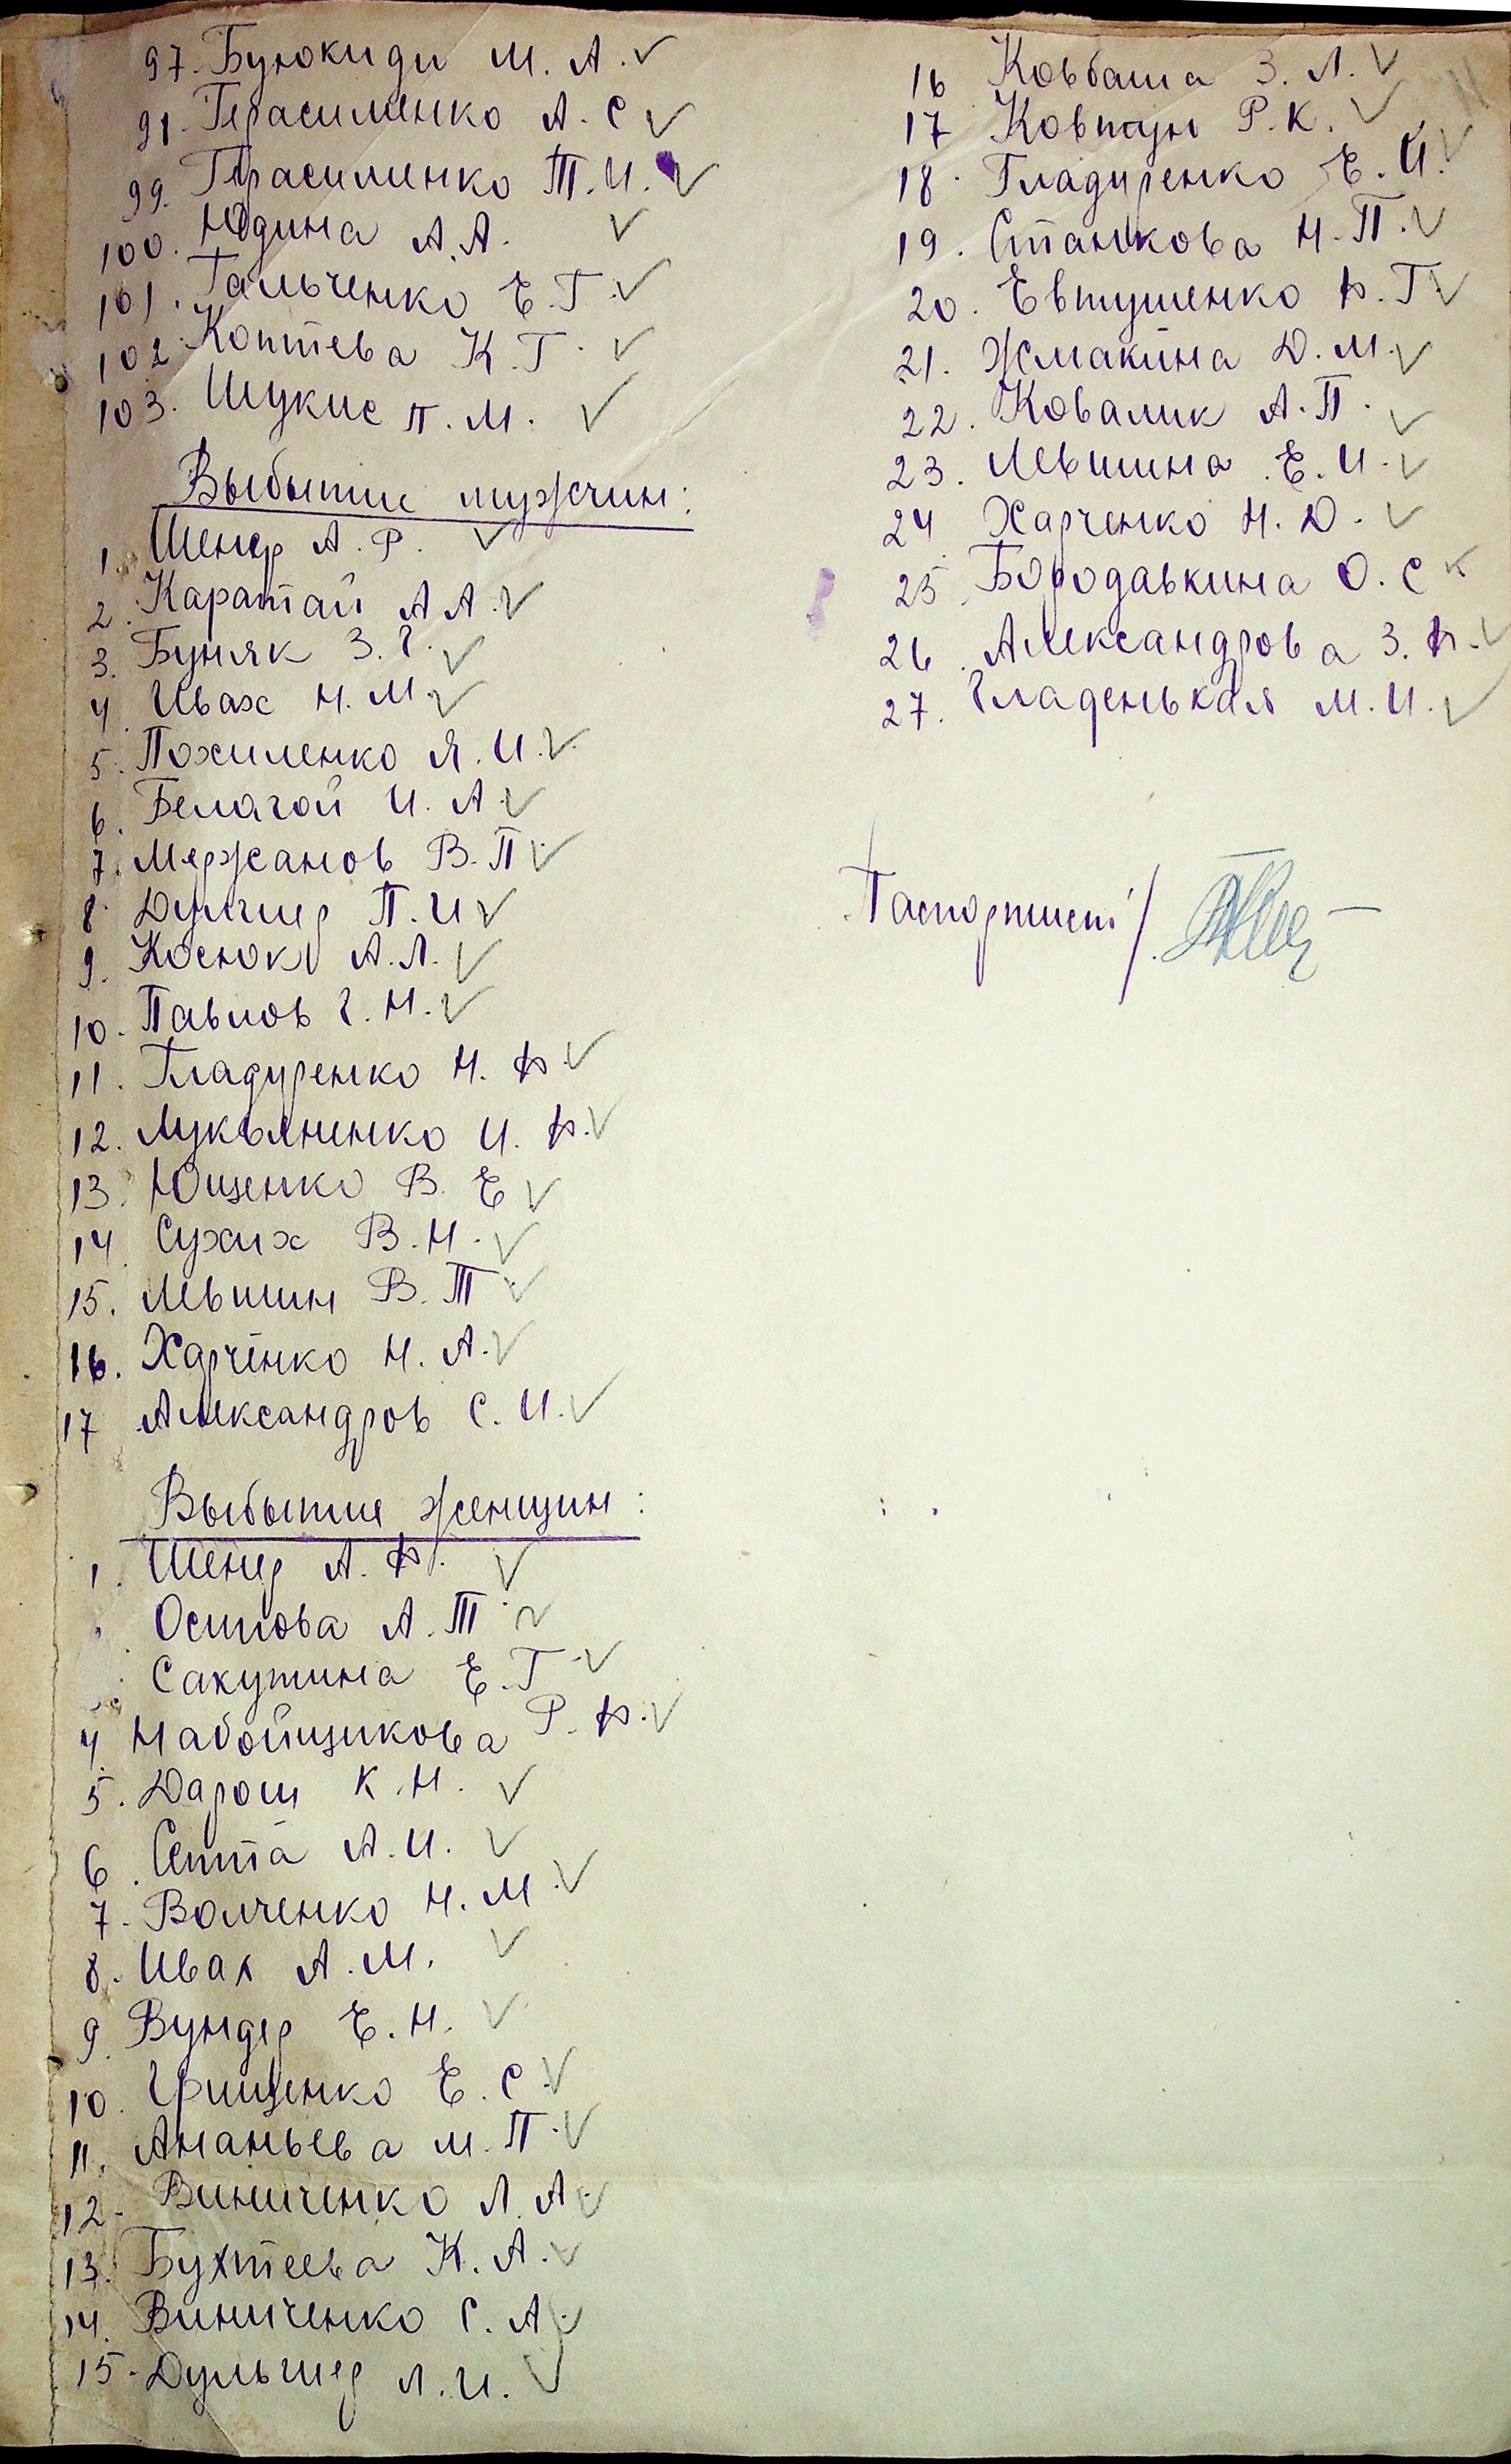 97. Буюкиди М. А.
91. Герасименко А. С
99. Герасименко Т. И.
100. Юдина А. А.
101. Гальченко Е. Г.
102. Коптева К. Г.
103. Шукис П. М.
Выбытие мужчин:
1. Шенер А. Р.
2. Каратай А А.
3. Буняк З. Г.
4 Ивах Н. М.
5. Похиленко Я. И.
6. Белагой И. А.
7. Мержанов В. П.
8. Дульгиер П. И
9. Косюк А. Л.
10. Павлов Г. Н.
11. Гладуренко Н. Ф.
12. Лукьяненко И. Ф.
13. Ющенко В. Е
14 Сухих В. Н.
15. Левшин В. Т
16. Харченко Н. А.
17 Александров С. И.
Выбытие женщин:
1. Шенер А. Ф.
Осипова А. Т
Сакутина Е. Г
4. Набойщикова Р. Ф.
5. Дарош К. Н.
6. Септа А. И.
7. Волченко Н. М.
8. Ивах А. М.
9. Вундер Е. Н.
10. Грищенко Е. С
11. Ананьева М. П.
12. Виниченко Л. А.
13. Бухтеева К. А.
14. Виниченко С. А.
15. Дульгиер Л. И.
16 Ковбаша З. Л.
17 Ковтун Р. К.
18. Гладуренко Е. И.
19. Станкова Н. П.
20. Евтушенко Ф. Г
21. Жмакина Д. М.
22. Ковалик А. П.
23. Левшина Е. И.
24 Харченко Н. Д.
25. Бородавкина О. С
26. Александрова З. Ф.
27. Гладенькая М. И.
Паспортист /